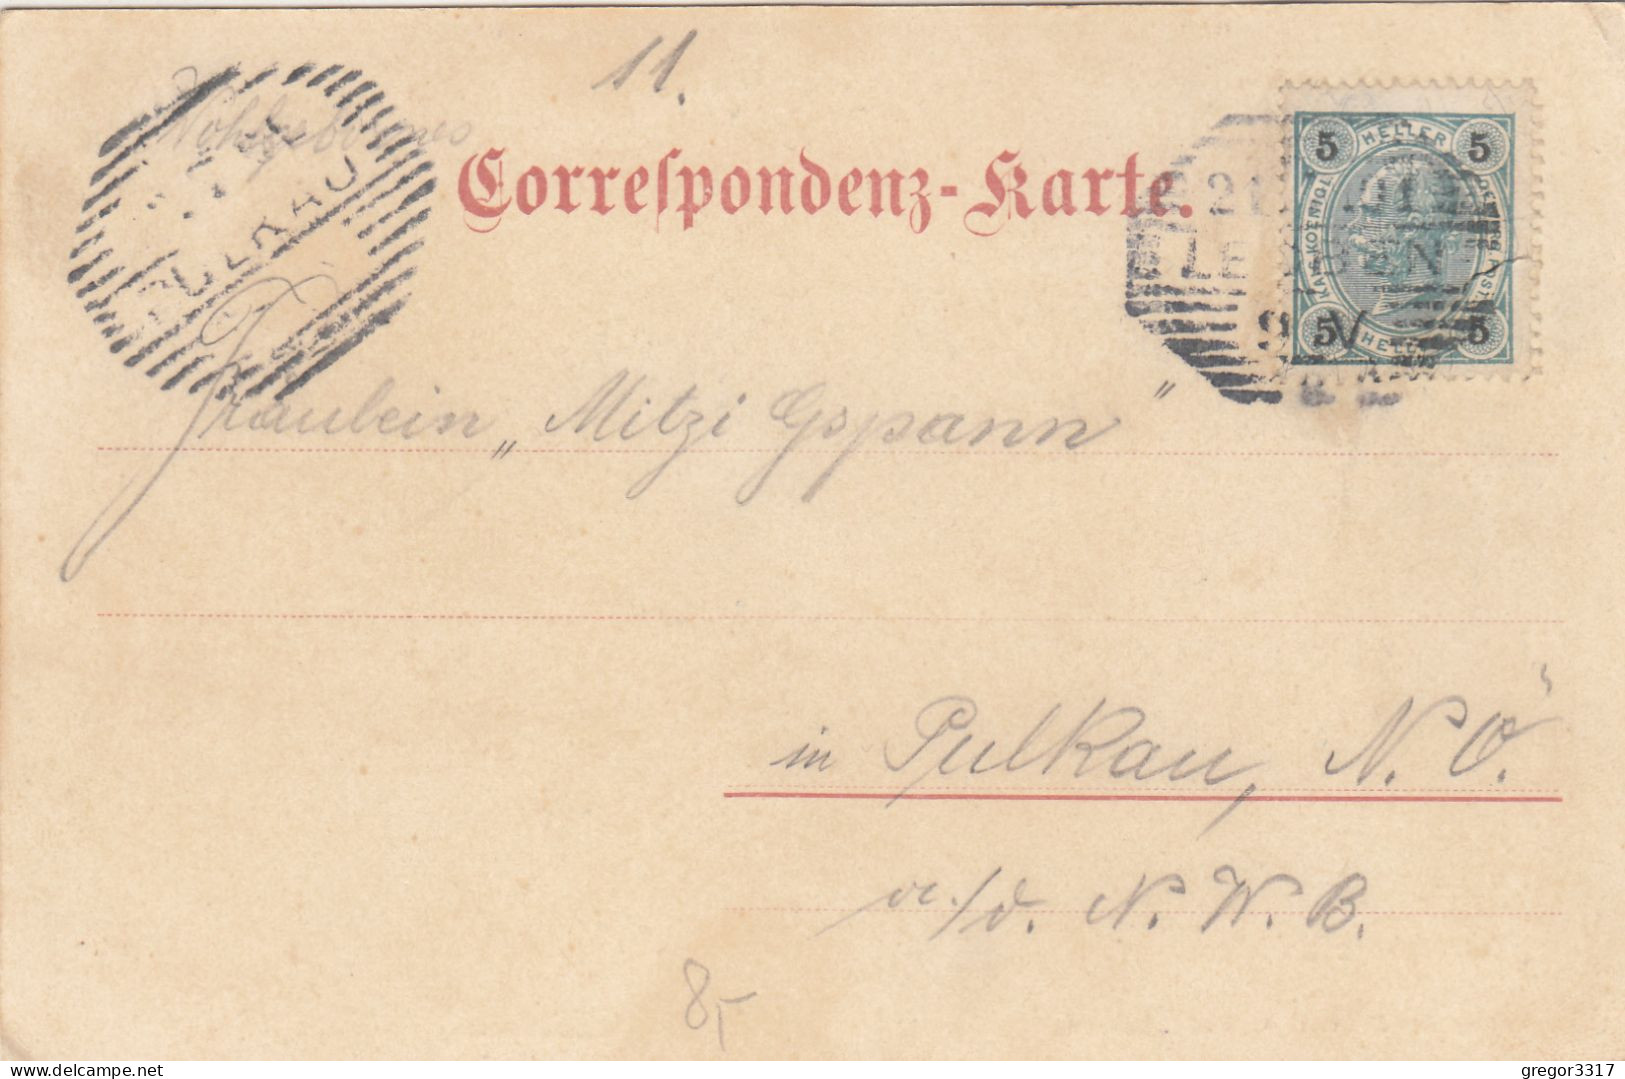 11.
Wohlgebornes
Correspondenz-Karte.
PULKAU
5 HELLER 5
KAIS. KOENIGL. OESTERR. POST
5 HELLER 5
9 V
Fräulein „Mitzi Gspann"
in Pulkau, N. Ö.
a./d. N. W. B.
8,-
delcampe.net
gregor3317